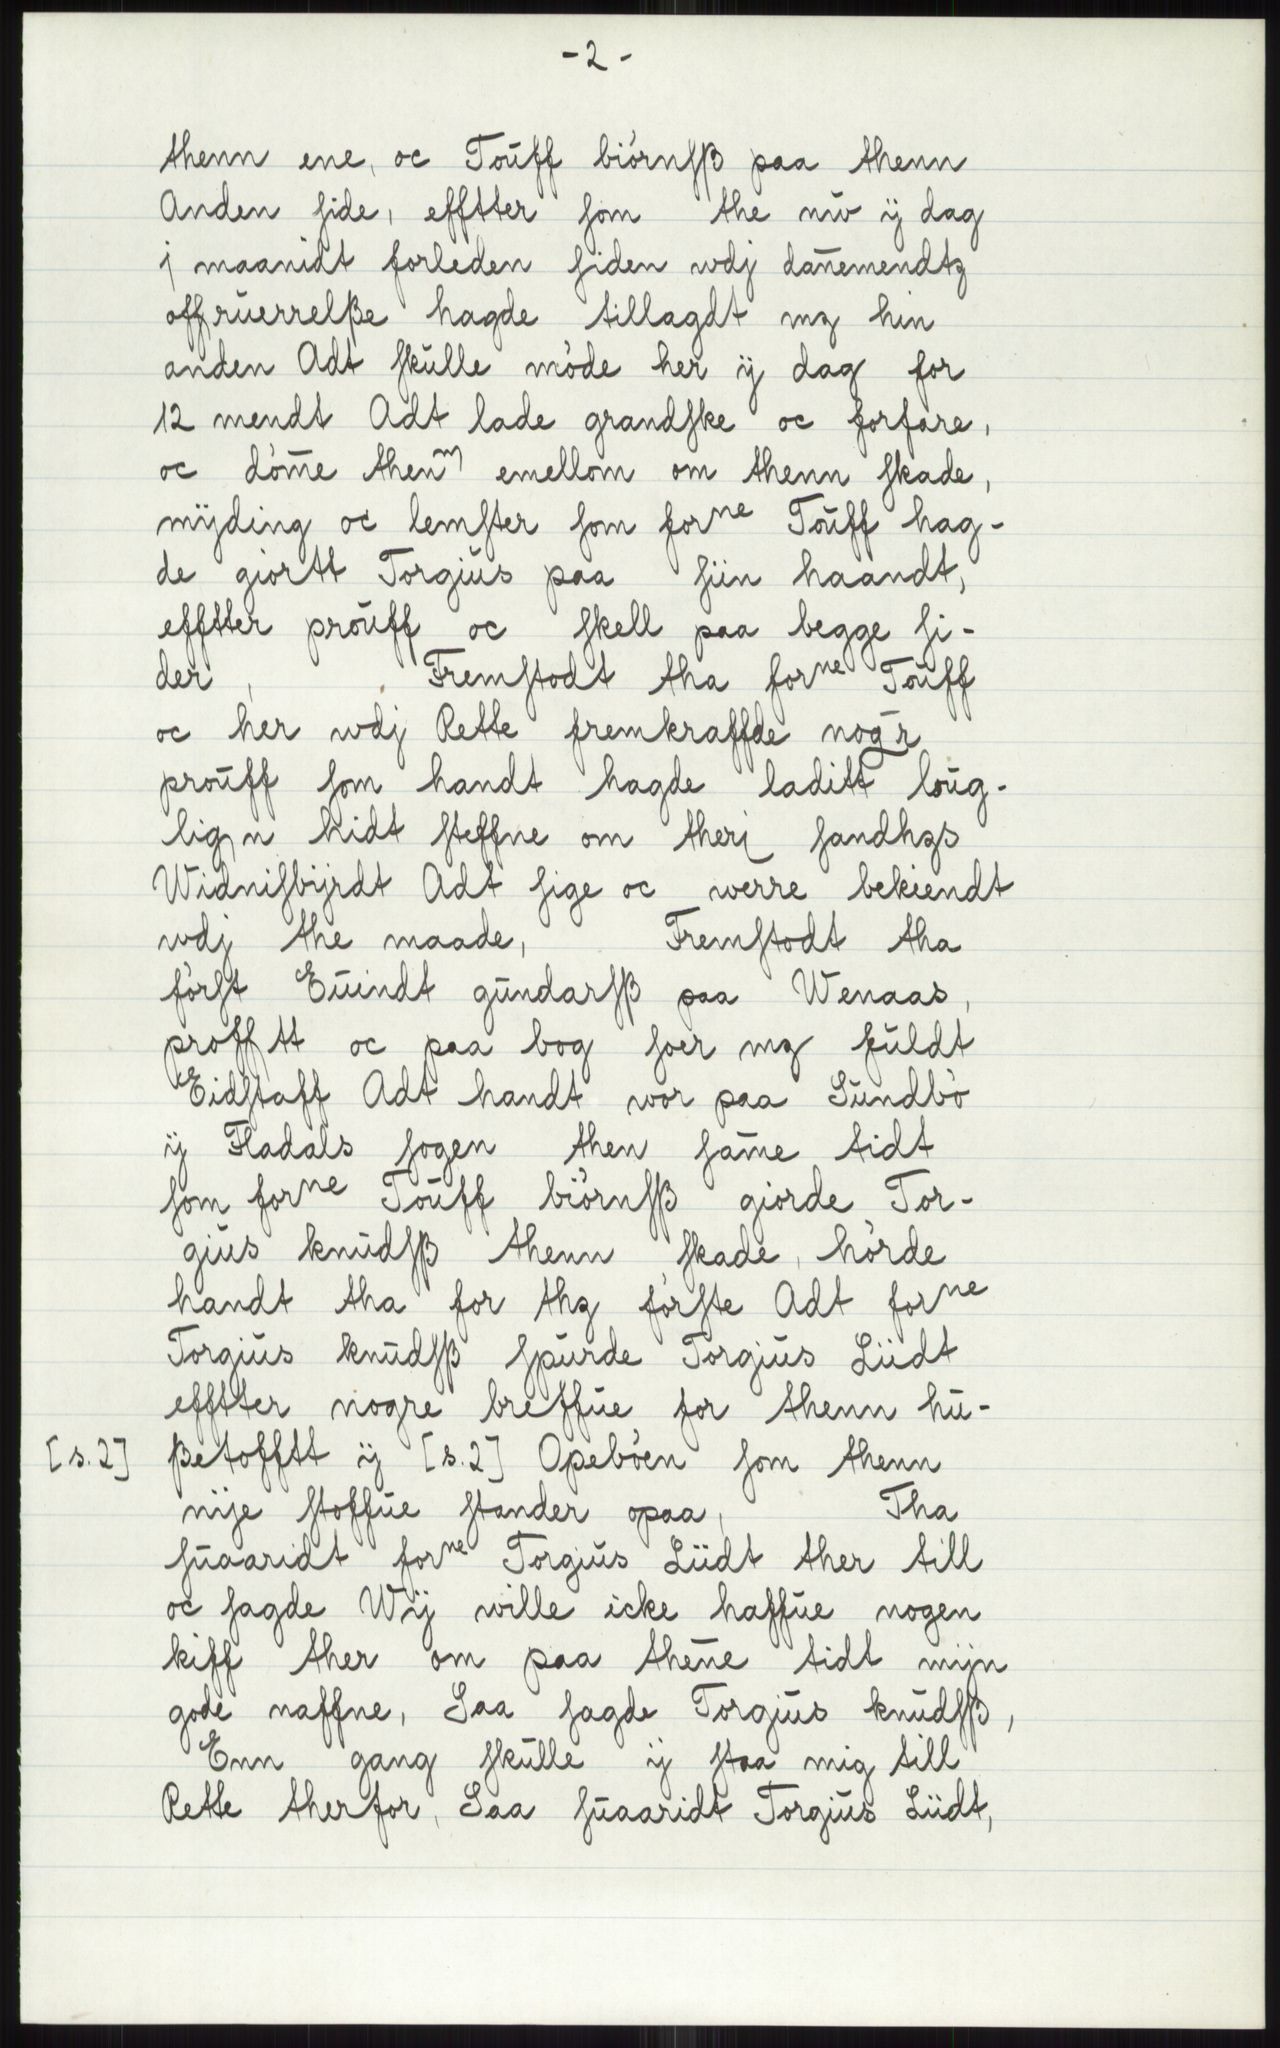 -2-
thenn ene, oc Touff biörnsß paa thenn
Anden side, efftter som the nw ÿ dag
j maanidt forleden siden wdj dan̄emendtz
offruerrelße hagde tillagdt mz hin
anden Adt skulle möde her ÿ dag for
12 mendt Adt lade grandske oc forfare,
oc döm̄e thenm emellom om thenn skade,
mÿding oc lemster som forne Touff hag-
de giortt Torgius paa siin haandt,
efftter prouff oc skell paa begge si-
der, Fremstodt tha forne Touff
oc her wdj Rette fremkraffde nogr
prouff som handt hagde laditt loug-
lign hidt steffne om theri sandhzs
Widnisbÿrdt Adt sige oc werre bekiendt
wdj the maade, Fremstodt tha
först Euindt gundarsß paa Wenaas,
profftt oc paa bog soer mz fuldt
Eidstaff Adt handt wor paa Sundbö
ÿ Fladals sogen then sam̄e tidt
som forne Touff biörnsß giorde Tor-
gius knudsß thenn skade, hörde
handt tha for thz förste Adt forne
Torgius knudsß spurde Torgius Liidt
efftter nogre breffue for thenn hu-
[s.2] ßetofftt ÿ [s.2] Opeböen som thenn
nÿe stoffue stander opaa, Tha
suaaridt forne Torgius Liidt ther till
oc sagde Wÿ wille icke haffue nogen
kiff ther om paa then̄e tidt mÿn
gode naffne, Saa sagde Torgius knudsß,
Enn gang skulle ÿ staa mig till
Rette therfor, Saa suaaridt Torgius Liidt,